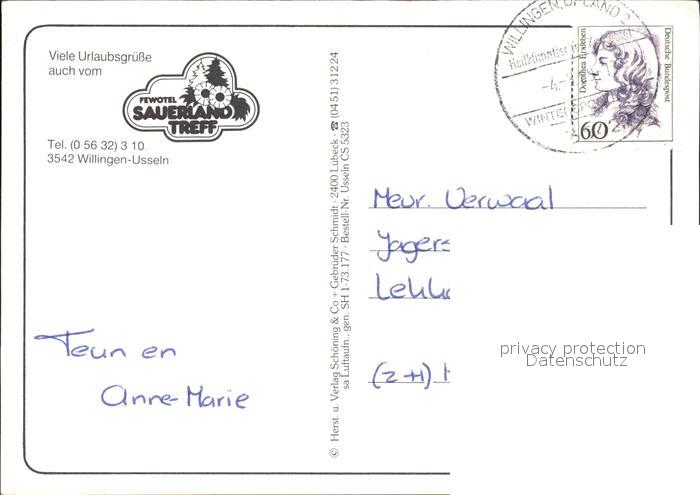 Viele Urlaubsgrüße
auch vom
FEWOTEL
SAUERLAND
TREFF
Tel. (0 56 32) 3 10.
3542 Willingen-Usseln
Teun en
Anne-Marie
© Herst. u. Verlag Schöning & Co + Gebrüder Schmidt · 2400 Lübeck ☎ (04 51) 3 12 24
sa Luftaufn., gen. SH 1-73.177 · Bestell-Nr. Usseln CS 5323
WILLINGEN, UPLAND 2
Heilklimatischer
-4.
WINTER
Dorothea Erxleben
Deutsche Bundespost
60
Mevr. Verwaal
Jagers
Lekk
(Z-H)
privacy protection
Datenschutz